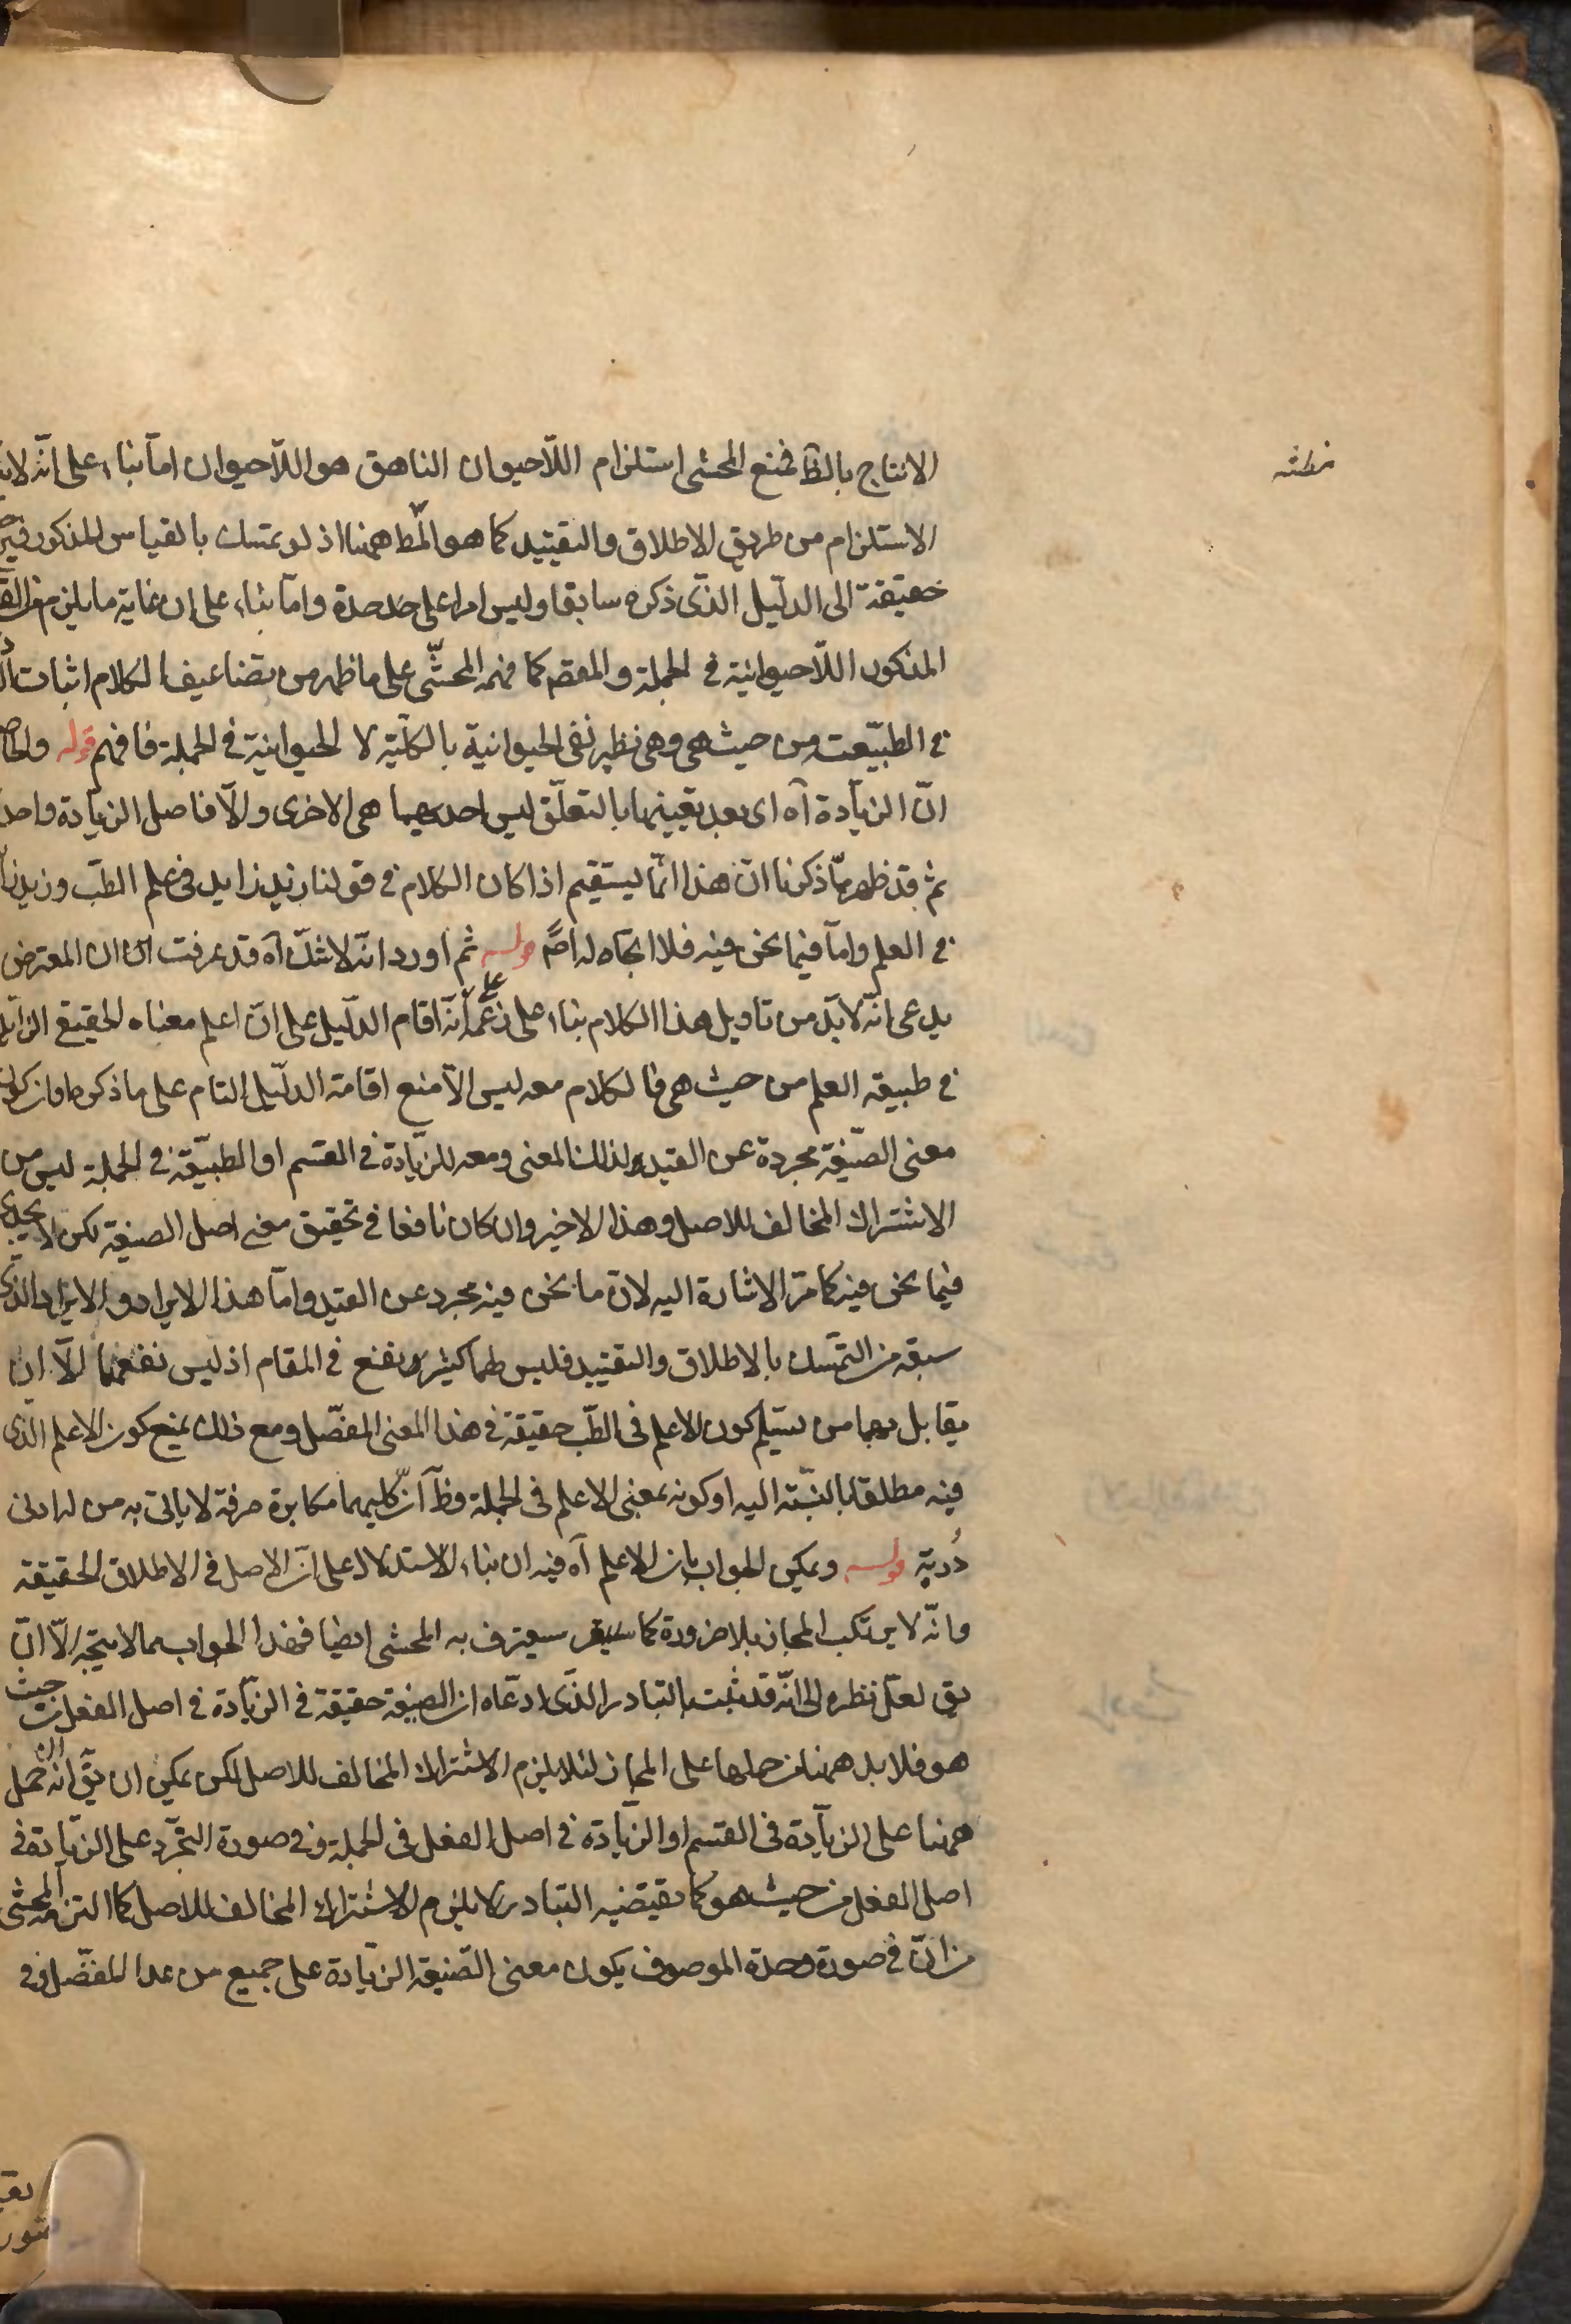 الانتاج بالظ فمنع المحشى استلزام اللّاحيوان الناهق هو اللّاحيوان امّا بناء على انّه
الاستلزام من طريق الاطلاق والتقييد كما هو المط ههنا اذ لو تمسك بالقياس المذكور
حقيقة الى الدليل الذى ذكره سابقا وليس امرا على حد حدة وامّا بناء على ان غاية ما يلزم من
المذكور اللّاحيوانية فى الجملة والمقصم كما فهمه المحشّى على ما ظهر من تضاعيف الكلام اثبات
فى الطبيعت من حيث هى وهى نظير نفى الحيوانية بالكلّية لا الحيوانية فى الجملة فافهم قوله
انّ الزيادة آه اى بعد تعيينها بالتعلّق ليس احديهما هى الاخرى والّا فاصل الزيادة
ثم قد ظهر ممّا ذكرنا انّ هذا انّما يستقيم اذا كان الكلام فى قولنا زيد زايد فى علم الطب وزيد
فى العلم وامّا فيما نحن فيه فلا اتجاه له اصًّ قوله ثم اورد انّه لا شكّ آه قد عرفت ان المعترض
يدعى انّه لابّد من تاويل هذا الكلام بناء على زعمه انّه اقام الدليل على انّ اعلم معناه الحقيقى الزايد
فى طبيعة العلم من حيث هى فالكلام معه ليس الّا منع اقامة الدليل التام على ما ذكره
معنى الصّيغة مجردة عن القيد ولذلك المعنى ومعه للزيادة فى القسم او الطبيّعة فى الجملة ليس من
الاشتراك المخالف للاصل وهذا الاخير وان كان نافعا فى تحقيق معنى اصل الصيغة لكن لا يجدى
فيما نحن فيه كما مرّ الاشارة اليه لانّ ما نحن فيه مجرد عن القيد وامّا هذا الايراد والايراد الذى
سبقه من التمسك بالاطلاق والتقييد فليس لهما كثير نفع فى المقام اذ ليس نفعهما الّا ان
يقابل بهما من يسلم كون الاعلم فى الطّب حقيقة فى هذا المعنى المفصّل ومع ذلك يمنع كون الاعلم الذى
فيه مطلقا بالنسّبة اليه او كونه بمعنى الاعلم فى الجملة وظ انّ كليهما مكابرة صرفة لا ياتى به من له ادنى
دُربة قوله ويمكن الجواب بان الاعلم آه فيه ان بناء الاستدلال على انّ الاصل فى الاطلاق الحقيقة
وانّه لا يرتكب المجاز بلا ضرورة كما سيعترف به المحشى ايضا فهذا الجواب مما لا يتجه الّا انّ
يق لعلّ نظره الى انّه قد ثبت بالتبادر الذى ادعّاه ان الصيغة حقيقة فى الزيّادة فى اصل الفعل من حيث
هو فلا بد ههنا من حملها على المجاز لئلا يلزم الاشتراك المخالف للاصل لكن يمكن ان يقّ انّه ان حمل
ههنا على الزيّادة فى القسم او الزيّادة فى اصل الفعل فى الجملة وفى صورة التجرّد على الزيّادة فى
اصل الفعل من حيث هو كما يقتضيه التبادر لا يلزم الاشتراك المخالف للاصل كما التزمه المحشى
من انّ فى صورة وحدة الموصوف يكون معنى الصّيغة الزيّادة على جميع من عدا المفضّل وفى